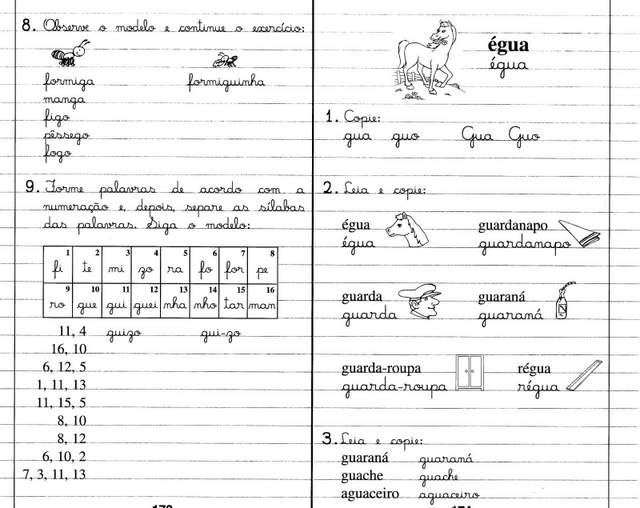 8. Observe o modelo e continue o exercício:
formiga formiguinha
manga
figo
pêssego
fogo
9. Forme palavras de acordo com a
numeração e, depois, separe as sílabas
das palavras. Siga o modelo:
1 2 3 4 5 6 7 8
fi te mi zo ra fo for pe
9 10 11 12 13 14 15 16
ro gue gui guei nha nho tar man
11, 4 guizo gui-zo
16, 10
6, 12, 5
1, 11, 13
11, 15, 5
8, 10
8, 12
6, 10, 2
7, 3, 11, 13
égua
égua
1. Copie:
gua guo Gua Guo
2. Leia e copie:
égua guardanapo
égua guardanapo
guarda guaraná
guarda guaraná
guarda-roupa régua
guarda-roupa régua
3. Leia e copie:
guaraná guaraná
guache guache
aguaceiro aguaceiro